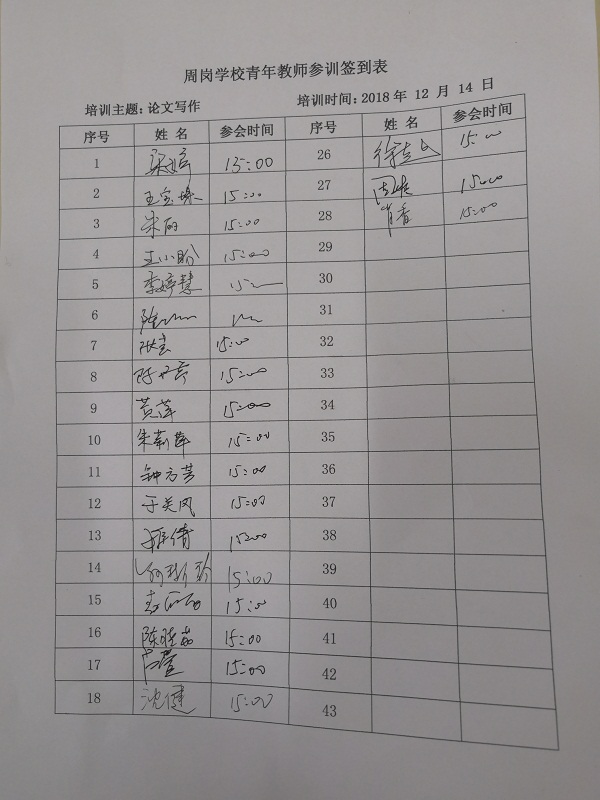 周岗学校青年教师参训签到表
培训主题:论文写作 培训时间:2018 年 12 月 14 日
序号 姓 名 参会时间 序号 姓 名 参会时间
1 15:00 26 15:00
2 王宝珠 15:00 27 15:00
3 宋丽 15:00 28 肖香 15:00
4 王小盼 15:00 29
5 李婷慧 30
6 31
7 15:00 32
8 15:00 33
9 黄萍 15:00 34
10 朱莉萍 15:00 35
11 钟方芳 15:00 36
12 于关凤 15:00 37
13 15:00 38
14 15:00 39
15 15:00 40
16 陈晓茹 15:00 41
17 15:00 42
18 沈健 15:00 43